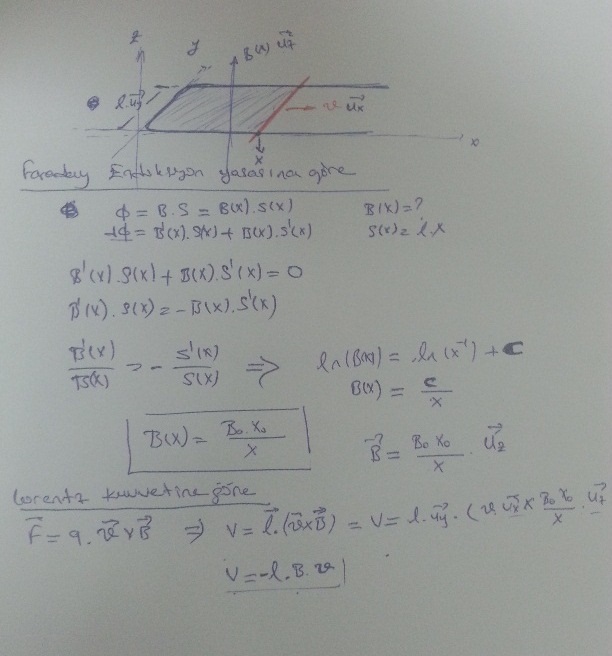 z
y
B(x) u⃗z
l.u⃗y
v u⃗x
x
x
Faraday Endüksiyon yasasına göre
ϕ = B.S = B(x).S(x)
B(x)=?
-dϕ = B'(x).S(x)+B(x).S'(x)
S(x)= l.x
B'(x).S(x)+B(x).S'(x)=0
B'(x).S(x)=-B(x).S'(x)
B'(x)/B(x) = - S'(x)/S(x) ⇒ ln(B(x)) = ln(x⁻¹)+C
B(x) = C/x
B(x)= B₀.x₀/x
B⃗ = B₀x₀/x . u⃗z
Lorentz kuvvetine göre
F⃗=q.v⃗xB⃗ ⇒ V=l⃗.(v⃗xB⃗) = V= l.u⃗y.(v.u⃗x x B₀x₀/x . u⃗z
V=-l.B.v